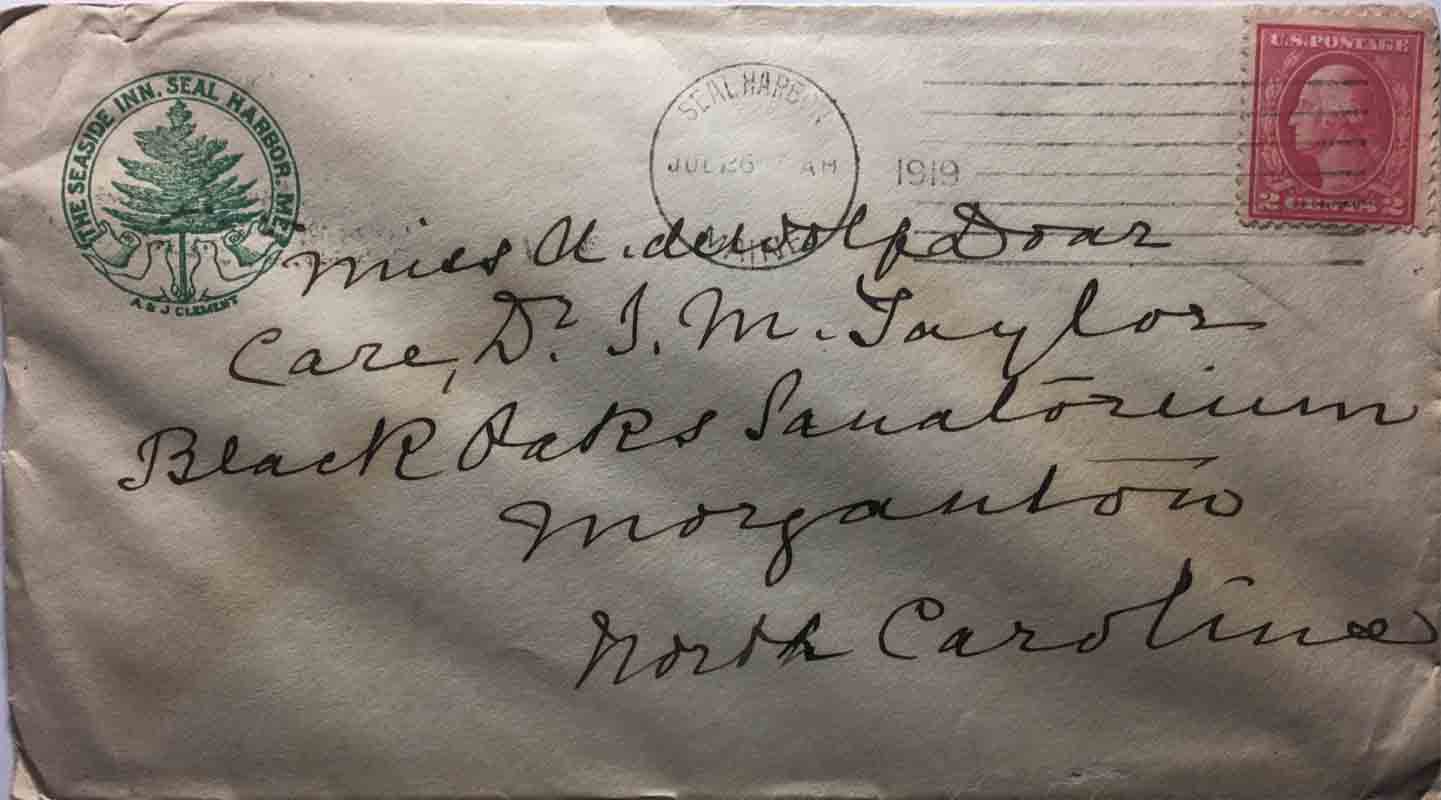 THE SEASIDE INN, SEAL HARBOR, ME.
A & J CLEMENT
SEAL HARBOR
JUL 26 AM
1919
MAINE
U.S. POSTAGE
2 CENTS 2
Miss U. dewolf Doar
Care, Dr. I. M. Taylor
Black Oaks Sanatorium
Morganton
North Carolina